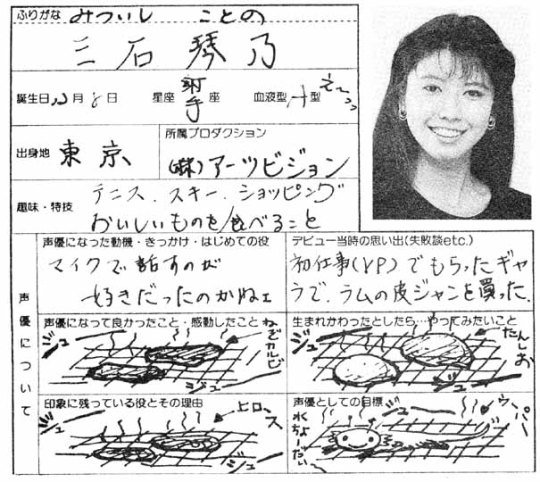 ふりがな みついし ことの
三石琴乃
誕生日 12月8日 星座 射手座 血液型 A型
出身地 東京
所属プロダクション
(株)アーツビジョン
趣味・特技
テニス．スキー．ショッピング
おいしいものを食べること
声優について
声優になった動機・きっかけ・はじめての役
マイクで話すのが
好きだったのかねェ
デビュー当時の思い出(失敗談etc.)
初仕事(VP)でもらったギャ
ラで、ラムの皮ジャンを買った．
声優になって良かったこと・感動したこと
ジュー
ねぎカルビ
ジュー
生まれかわったとしたら…やってみたいこと
ジュー
たんしお
ジュー
印象に残っている役とその理由
ヒロース
ジュー
声優としての目標
ジュー
ウーパー